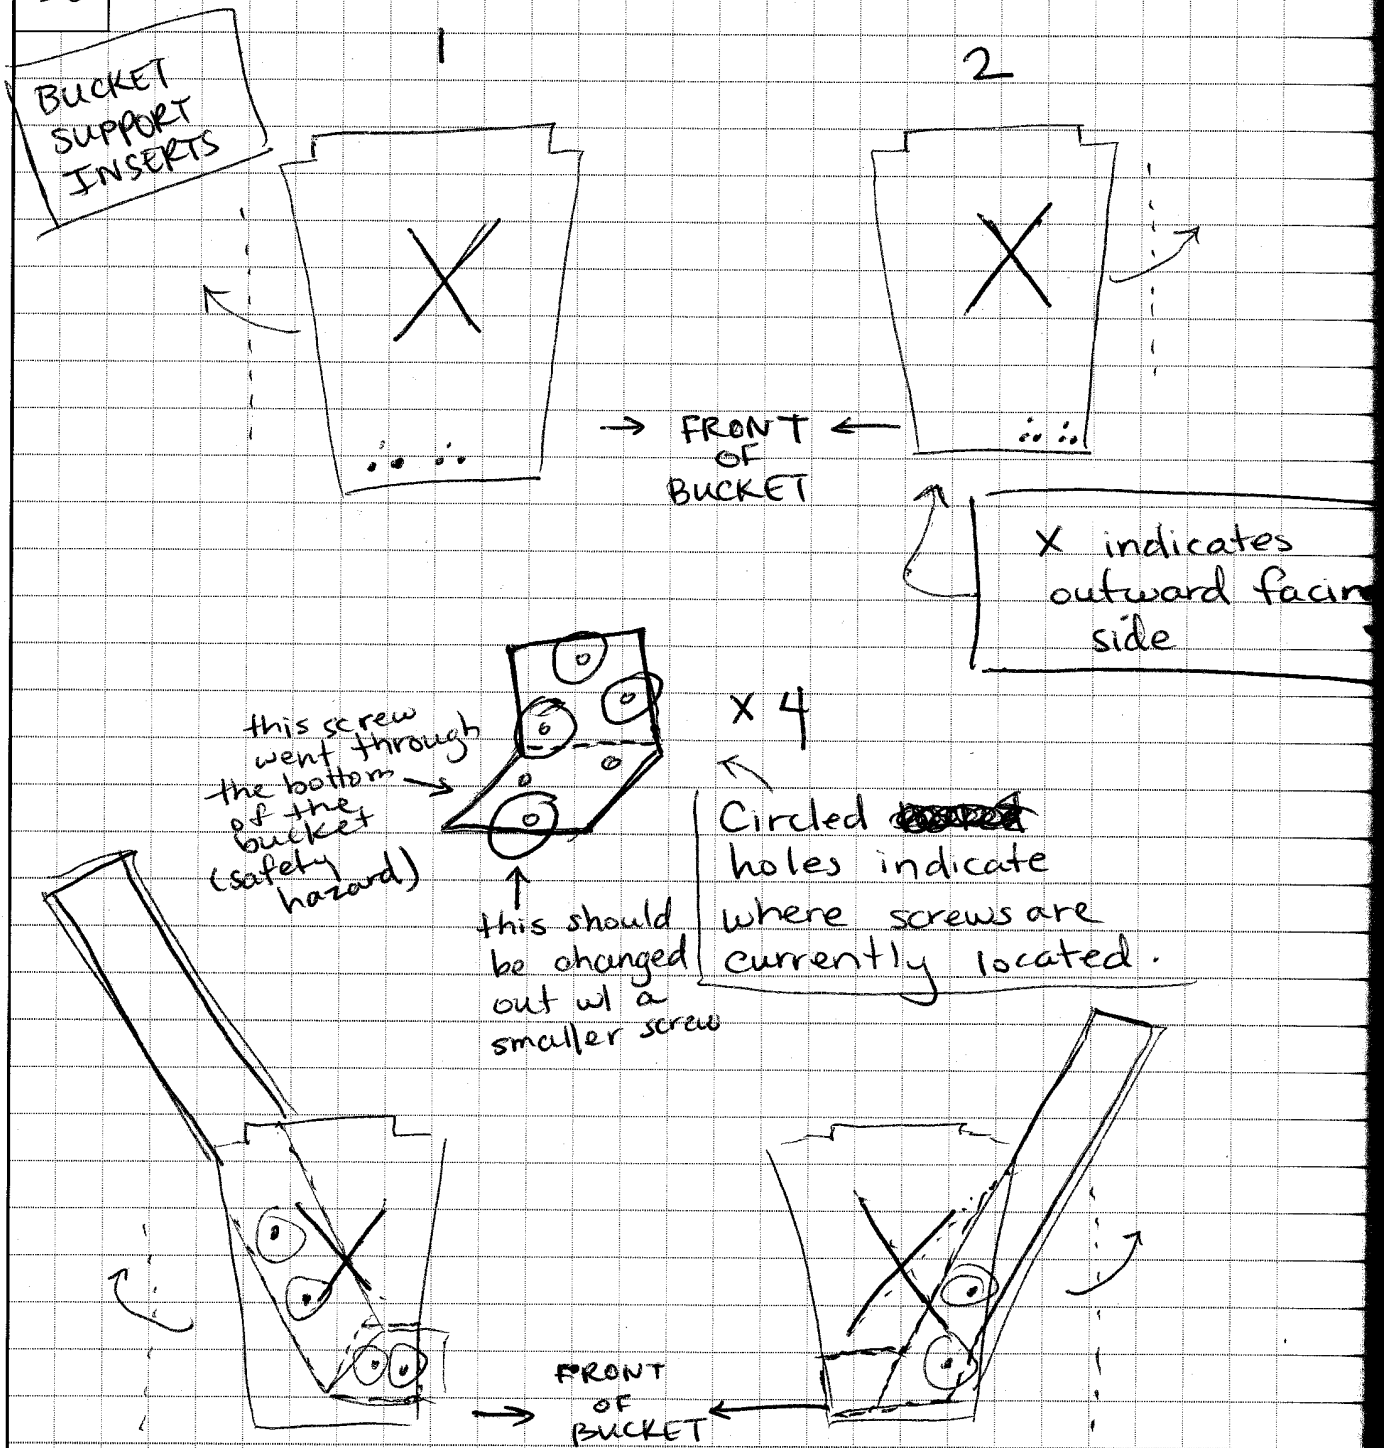 BUCKET
SUPPORT
INSERTS
1
2
X
X
→ FRONT ←
OF
BUCKET
X indicates
outward facin
side
this screw
went through
the bottom
of the
bucket
(safety
hazard)
x 4
Circled
holes indicate
where screws are
currently located.
this should
be changed
out w/ a
smaller screw
X
X
FRONT
OF
→ BUCKET ←